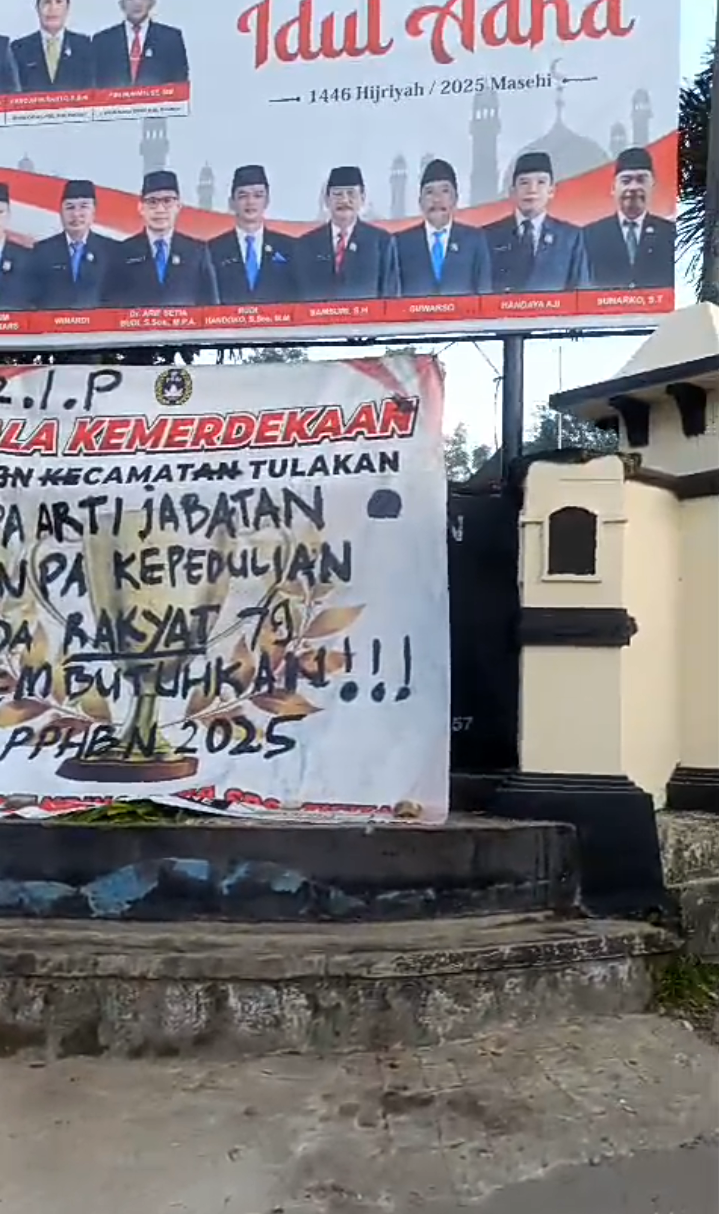 Idul Adha
1446 Hijriyah / 2025 Masehi
WINARDI
Dr. ARIF SETIA
BUDI, S.Sos., M.P.A
RUDI
HANDOKO, S.Sos., M.M
BAMBURI, S.H
GUWARSO
HANDAYA AJI
SUNARKO, S.T
R.I.P
LA KEMERDEKAAN
BN KECAMATAN TULAKAN
PA ARTI JABATAN
NPA KEPEDULIAN
DA RAKYAT 79
EMBUTUHKAN!!!
PPHBN 2025
57